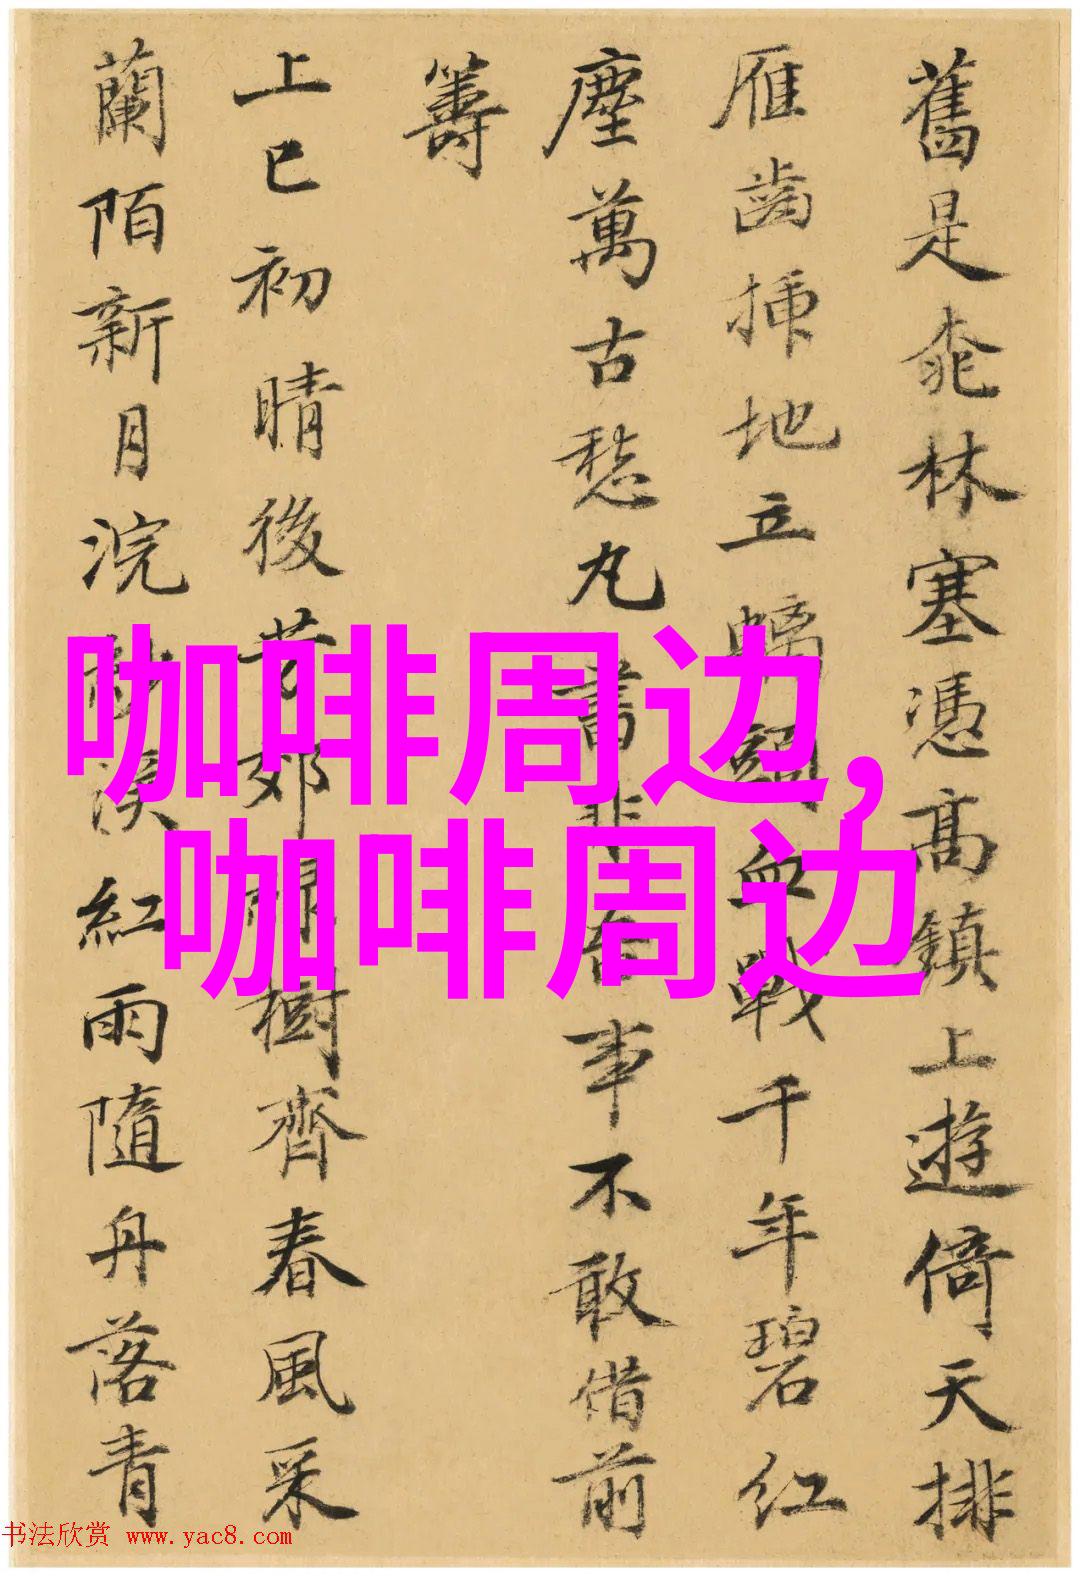 舊是桃林塞憑高鎮上遊倚天排
雁齒插地立螭頭血戰千年碧紅
塵萬古愁丸書非吾事不敢借前
籌
上巳初晴後芳郊綠樹齊春風采
蘭陌新月浣溪紅雨隨舟落青
咖啡周边,
咖啡周边
书法欣赏 www.yac8.com